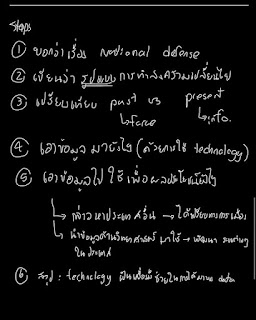 Steps
① บอกว่าเรื่อง national defense
② เขียนว่า รูปแบบ การทำสงครามเปลี่ยนไป
③ เปรียบเทียบ past vs present
↳ force ↳ info.
④ เอาข้อมูล มายังไง (ด้วยการใช้ technology)
⑤ เอาข้อมูลไป ใช้ เพื่อผลประโยชน์ยังไง
↳ ประเทศอื่น → ได้เปรียบทางการเมือง
↳ นำข้อมูลด้านวิทยาศาสตร์ มาใช้ → พัฒนา
ในประเทศ
⑥ สรุป : technology เป็น ช่วยในการได้มาของ data